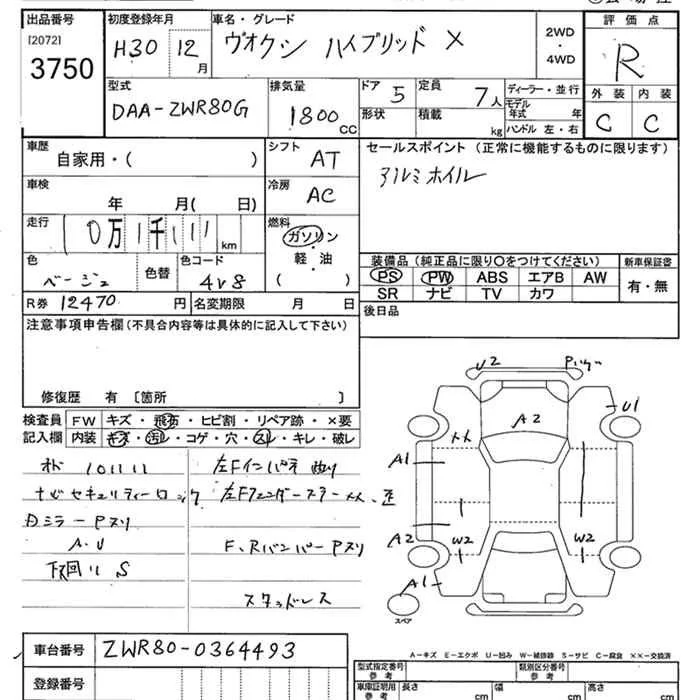 出品番号
[2072]
3750
初度登録年月
H30 12 月
車名・グレード
ヴオクシ ハイブリッド X
2WD
・
4WD
評価点
R
型式
DAA-ZWR80G
排気量
1800 CC
ドア 5
形状
定員 7 人
積載 kg
ディーラー・並行
モデル年式 年
ハンドル 左・右
外装 内装
C C
車歴
自家用・( )
シフト AT
車検
年 月( 日)
冷房 AC
走行
0万1千111 km
燃料
ガソリン
軽・油
( )
色
ベージュ
色替
色コード
4V8
R券 12470 円
名変期限 月 日
セールスポイント (正常に機能するものに限ります)
アルミホイル
装備品 (純正品に限り○をつけてください)
PS PW ABS エアB AW
SR ナビ TV カワ
新車保証書
有・無
後日品
注意事項申告欄 (不具合内容等は具体的に記入して下さい)
修復歴 有 〔箇所 〕
検査員 FW キズ・飛石・ヒビ割・リペア跡・×要
記入欄 内装 キズ・汚レ・コゲ・穴・スレ・キレ・破レ
101111
ナビセキュリティーロック
Dミラー Pスリ
A・U
下回り S
左Fインパネ
左Fフェンダー
F、Rバンパー Pスリ
スタッドレス
U2
U1
A2
A1
A2
W2
W2
A1
スペア
A-キズ E-エクボ U-凹み W-補修跡 S-サビ C-腐食 ××-交換済
車台番号 ZWR80-0364493
登録番号
型式指定番号
参考
類別区分番号
参考
車庫証明用
参考
長さ cm
幅 cm
高さ cm